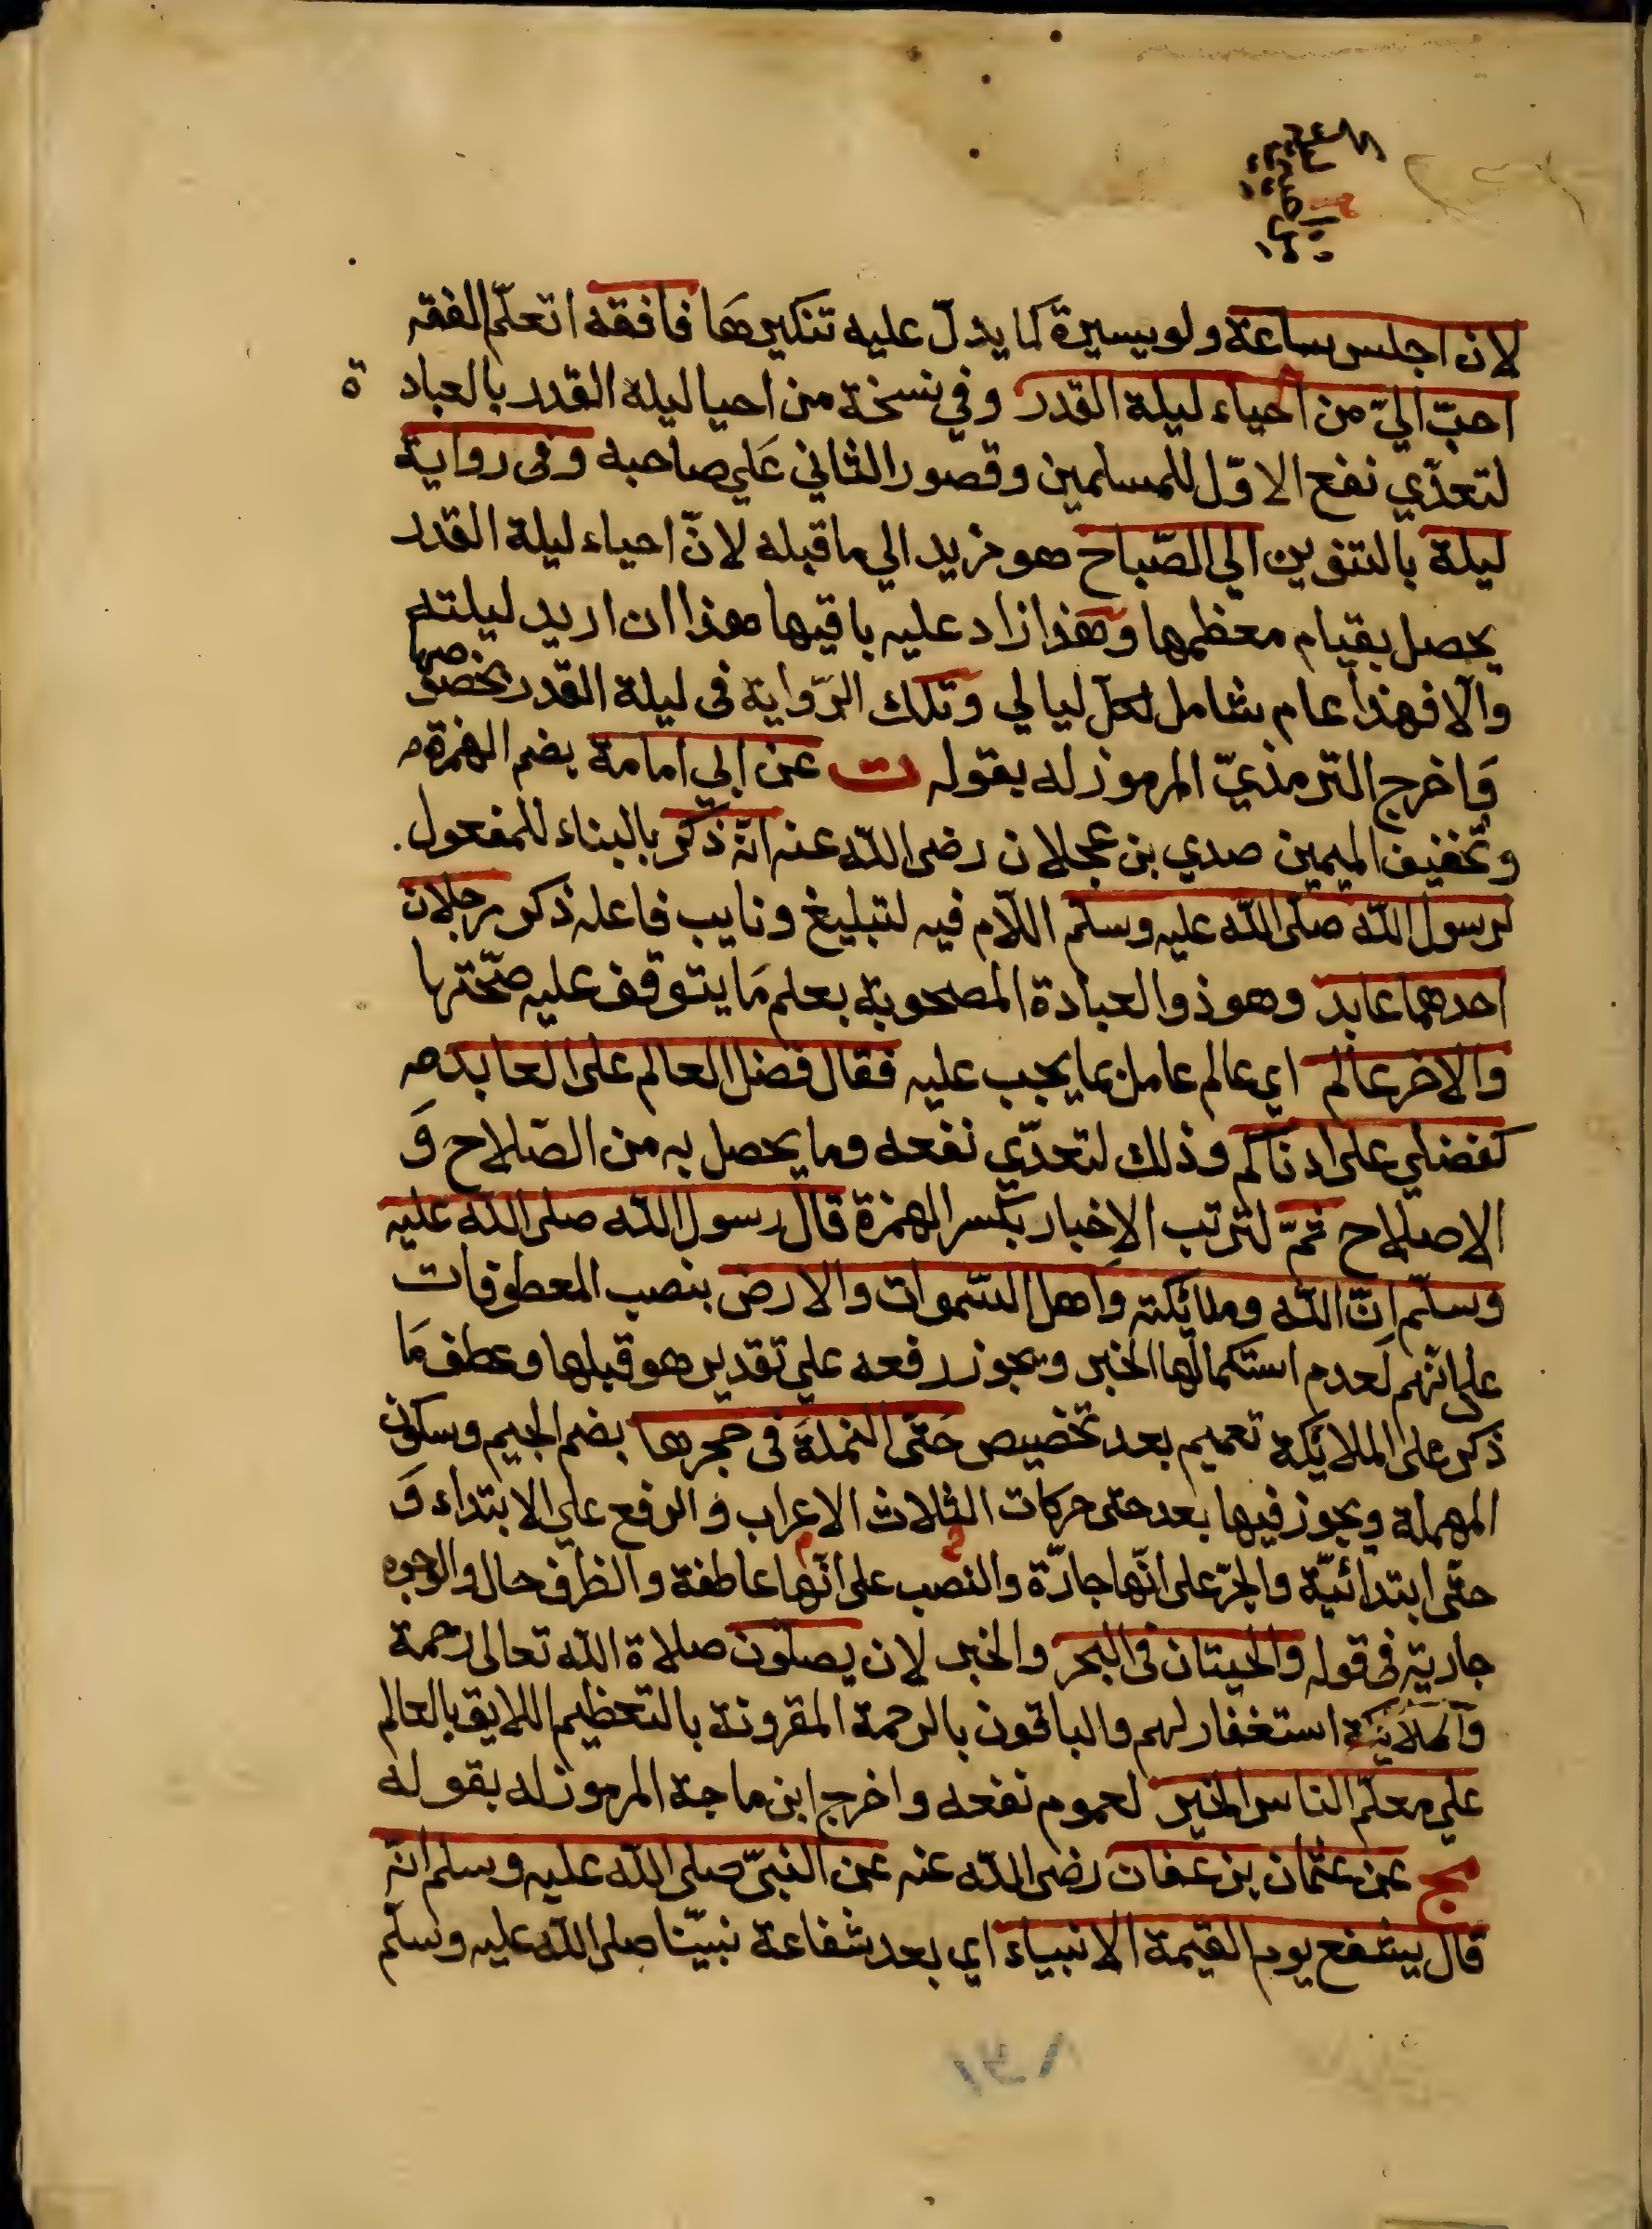 لان اجلس ساعة ولو يسيرة كما يدلّ عليه تنكيرها فافقه اتعلّم الفقه
احبّ اليّ من احياء ليلة القدر وفي نسخة من احيا ليلة القدر بالعبادة
لتعدّي نفع الاوّل للمسلمين وقصور الثاني علي صاحبه وفى رواية
ليلة بالتنوين الي الصّباح هو مزيد الي ما قبله لانّ احياء ليلة القدر
يحصل بقيام معظمها وهذا زاد عليه باقيها هذا ان اريد ليلته
والّا فهذا عام شامل لكلّ ليالي وتلك الرّواية فى ليلة القدر بخصوصها
وَاخرج الترمذيّ المرموز له بقوله ت عن ابي امامة بضم الهمزة
وتخفيف الميمين صدي بن عجلان رضى الله عنه انّه ذُكر بالبناء للمفعول.
لرسول الله صلى الله عليه وسلّم اللّام فيه لتبليغ ونايب فاعله ذكر رجلان
احدهما عابد وهو ذو العبادة المصحوبة بعلم مَا يتوقف عليه صحّتها
والاخر عالم اي عالم عامل بما يجب عليه فقال فضل العالم على العابد
كفضلي على ادناكم وذلك لتعدّي نفعه وما يحصل به من الصّلاح وَ
الاصلاح ثمّ لترتب الاِخبار بكسر الهمزة قال رسول الله صلى الله عليه
وسلّم انّ الله وملائكته وَاهل السّموات والارض بنصب المعطوفات
على انّهم لعدم استكمالها الخبر ويجوز رفعه على تقدير هو قبلها وعطف مَا
ذكر على الملائكة تعميم بعد تخصيص حَتى النملةَ فى جحرها بضم الجيم وسكون
المهملة ويجوز فيها بعد حتى حركات الثلاث الاعراب والرفع علي الابتداء وَ
حتّى ابتدائيّة والجرّ على انّها جارّة والنصب على انّها عاطفة والظرف حال والوجوه
جارية فى قوله والحيتان فى البحر والخبر لان يصلّون صلاة الله تعالى رحمة
والملائكة استغفار لهم والباقون بالرحمة المقرونة بالتعظيم اللايق بالعالم
علي معلّم الناس الخير لعموم نفعه واخرج ابن ماجة المرموز له بقوله
مج عن عثمان بن عفان رضى الله عنه عن النبىّ صلى الله عليه وسلم انّه
قال يشفع يوم القيمة الانبياء اي بعد شفاعة نبيّنا صلى الله عليه وسلّم